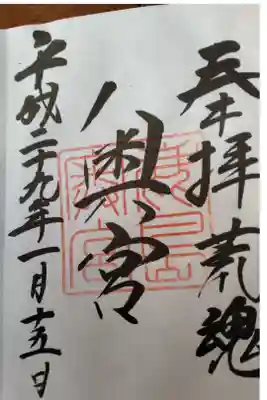 奉拝 荒魂
奥宮
平成二十九年一月十五日